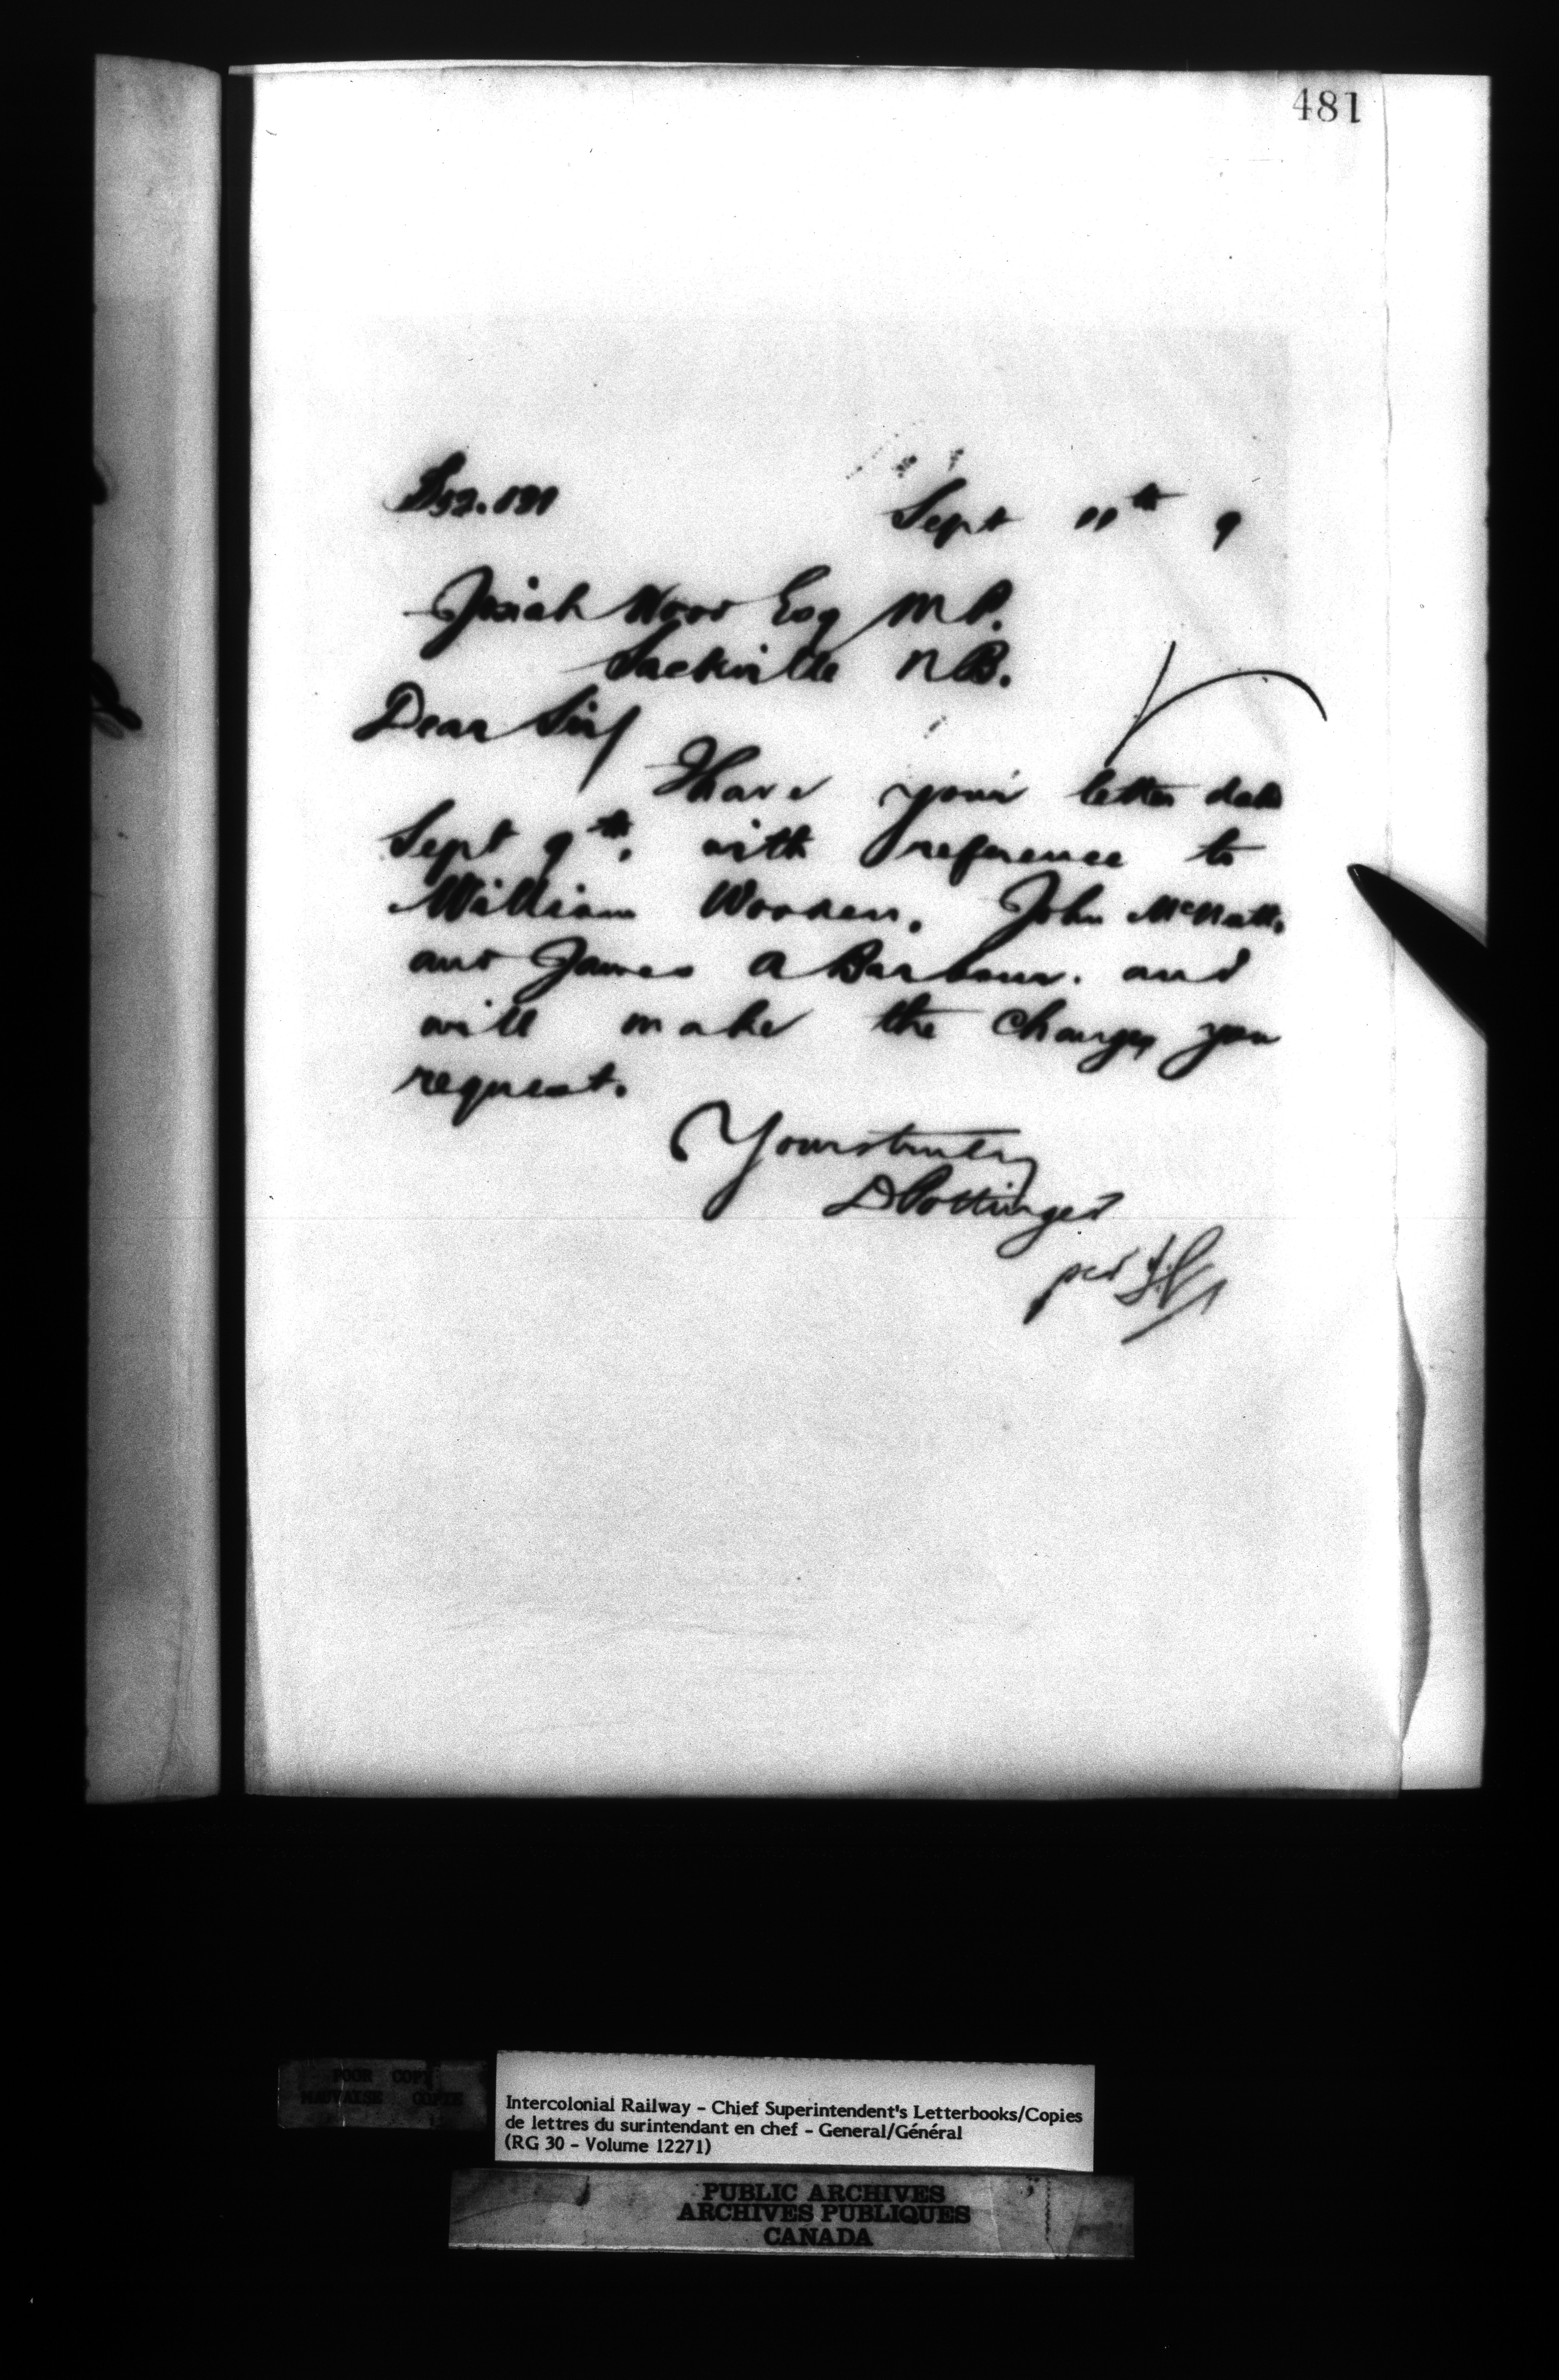 481
Sept 11th 9
Josiah Wood Esq M P.
Sackville N B.
Dear Sir/
I have your letter date
Sept 9th. with reference to
William John
and James A Barbour. and
will make the changes you
request.
Yours truly
D Pottinger
per
POOR COPY
MAUVAISE COPIE
Intercolonial Railway - Chief Superintendent's Letterbooks/Copies
de lettres du surintendant en chef - General/Général
(RG 30 - Volume 12271)
PUBLIC ARCHIVES
ARCHIVES PUBLIQUES
CANADA